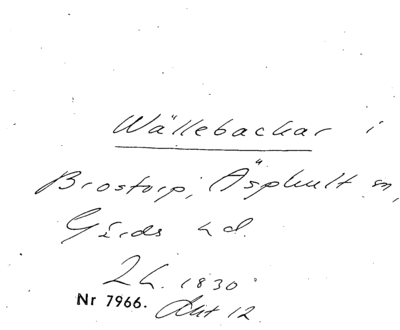 Wällebackar i
Brostorp, Äsphult sn,
Gärds hd.
2 h. 1830
Nr 7966. Akt 12